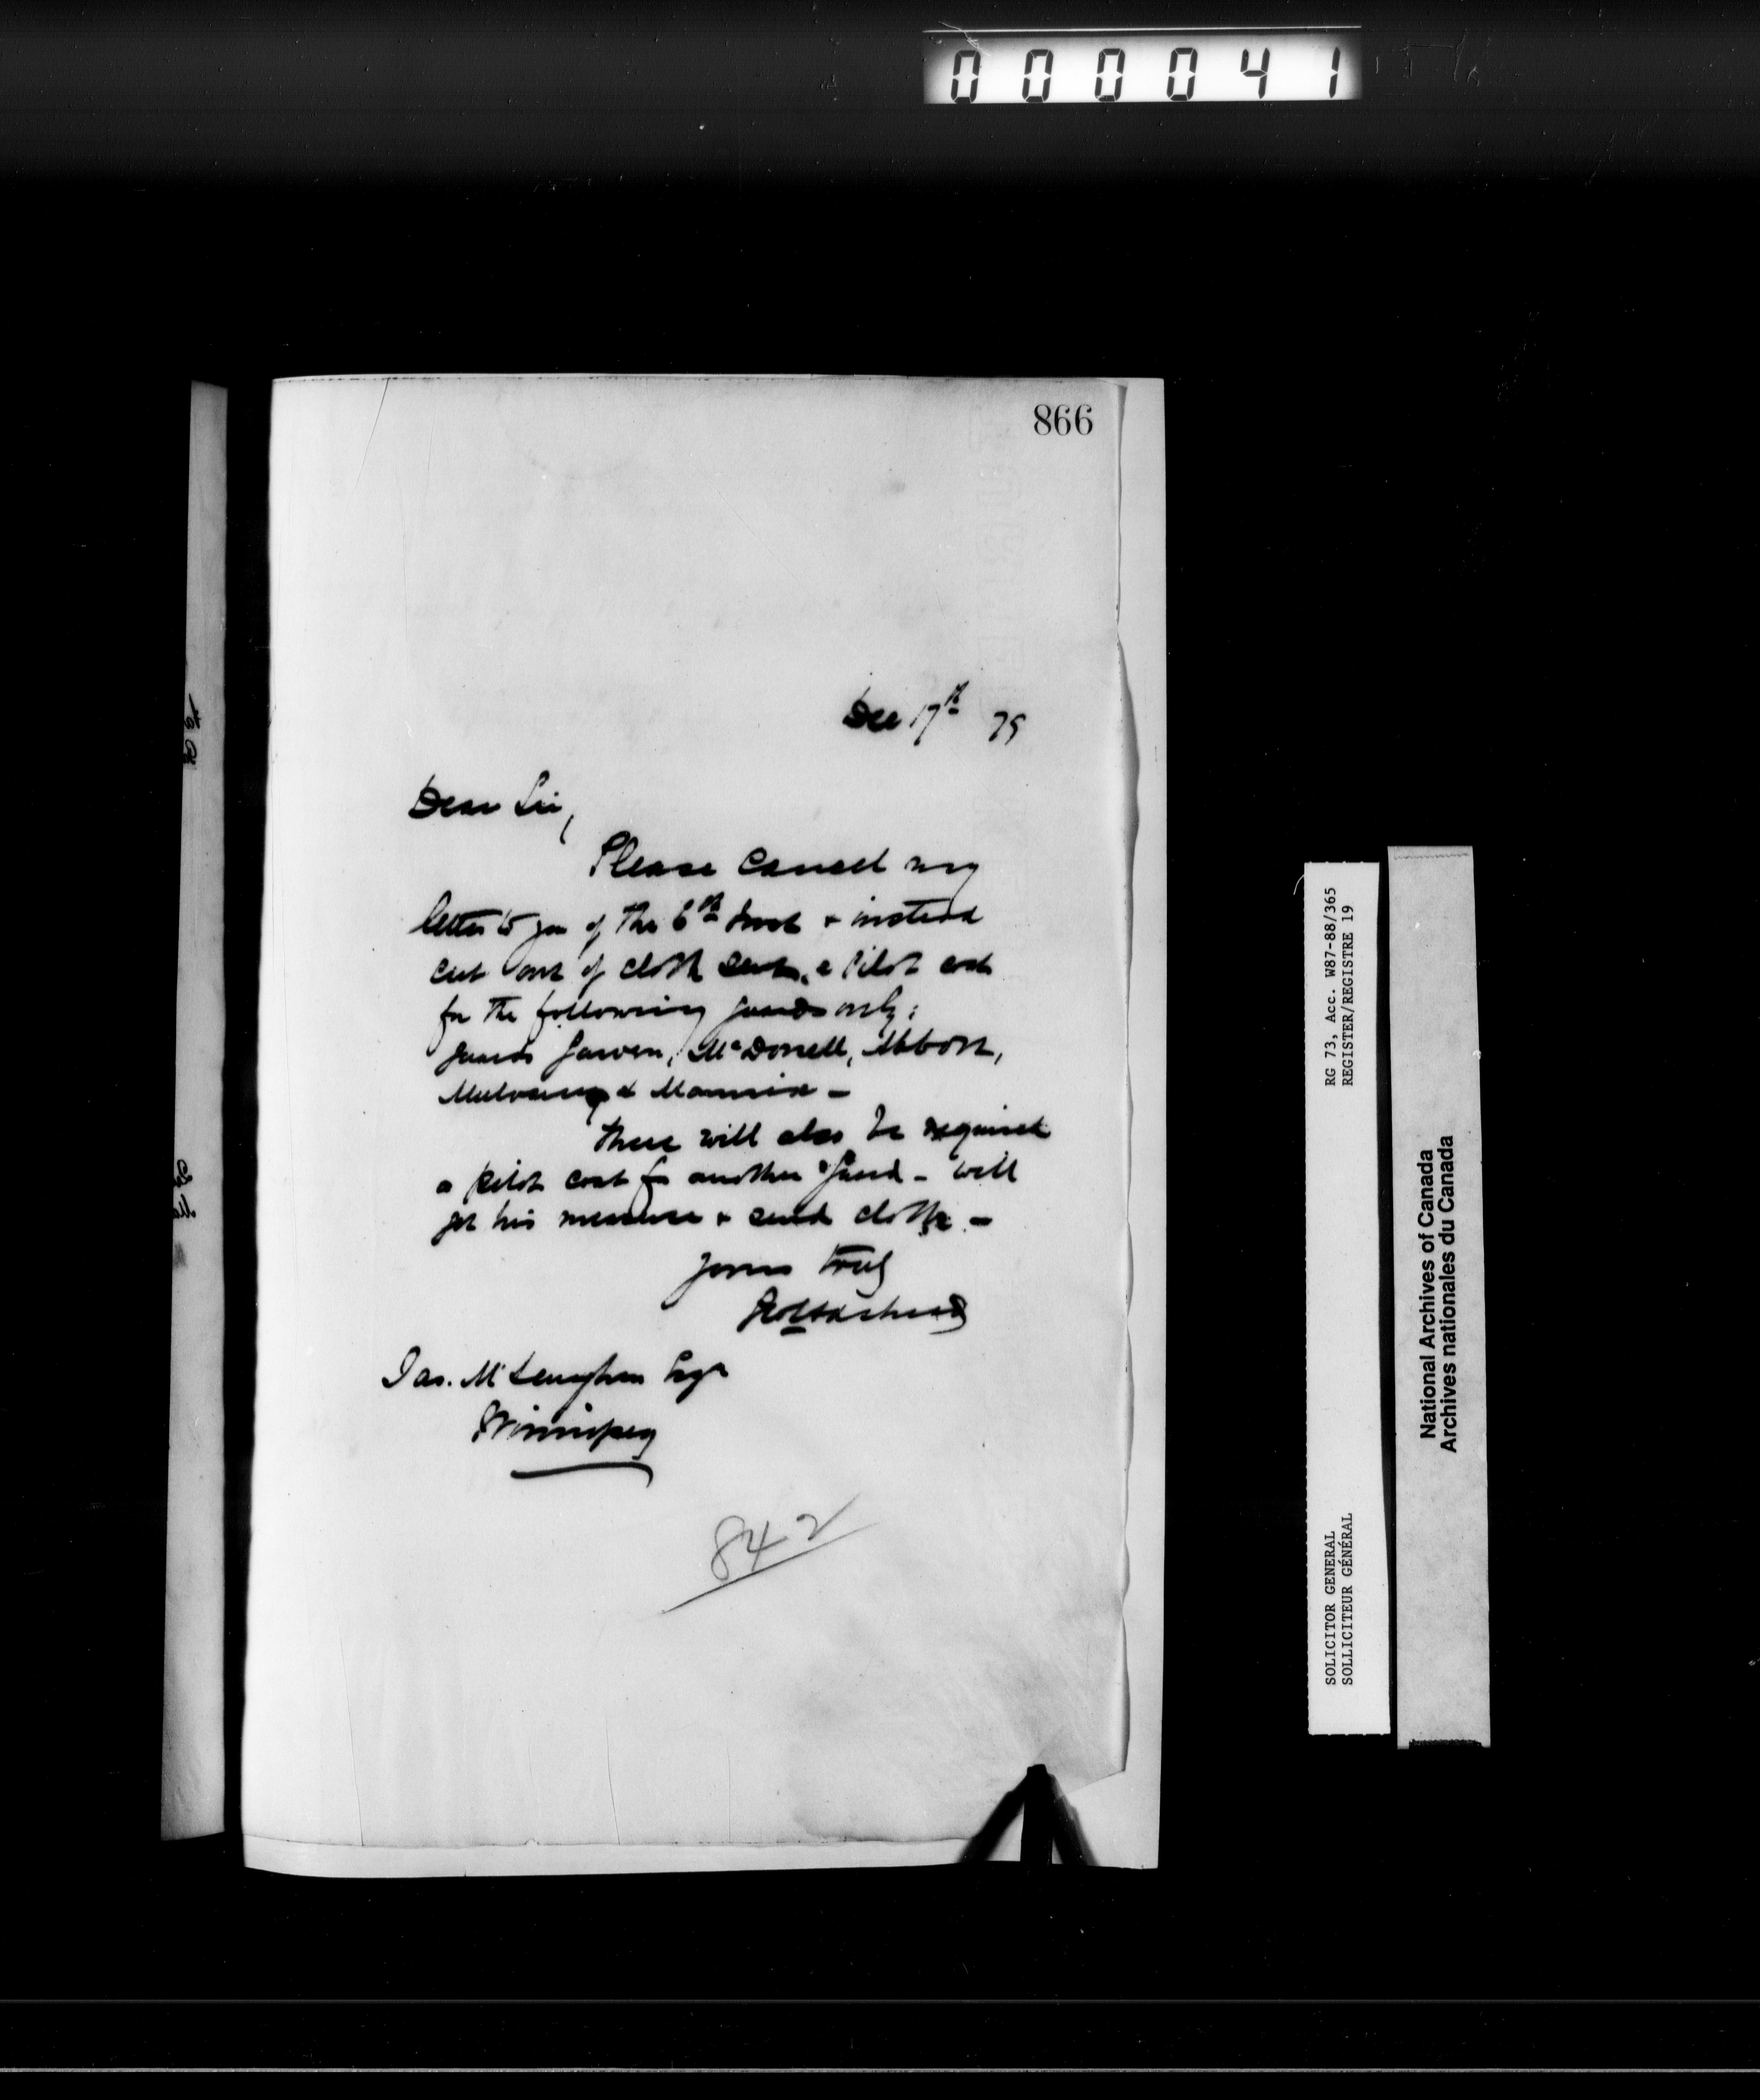 000041
866
Dec 17th 79
Dear Sir,
Please Cancel my
letter to you of the 6th Inst & instead
cut out of cloth sent, a Pilot coat
for the following guards only:
Guards Garven, McDonell, Abbott,
Mulvaney & Mannix -
There will also be required
a pilot coat for another Guard - will
get his measure & send cloth -
Yours truly
Jas. Mc Lenaghen Esqr
Winnipeg
842
RG 73, Acc. W87-88/365
REGISTER/REGISTRE 19
SOLICITOR GENERAL
SOLLICITEUR GÉNÉRAL
National Archives of Canada
Archives nationales du Canada